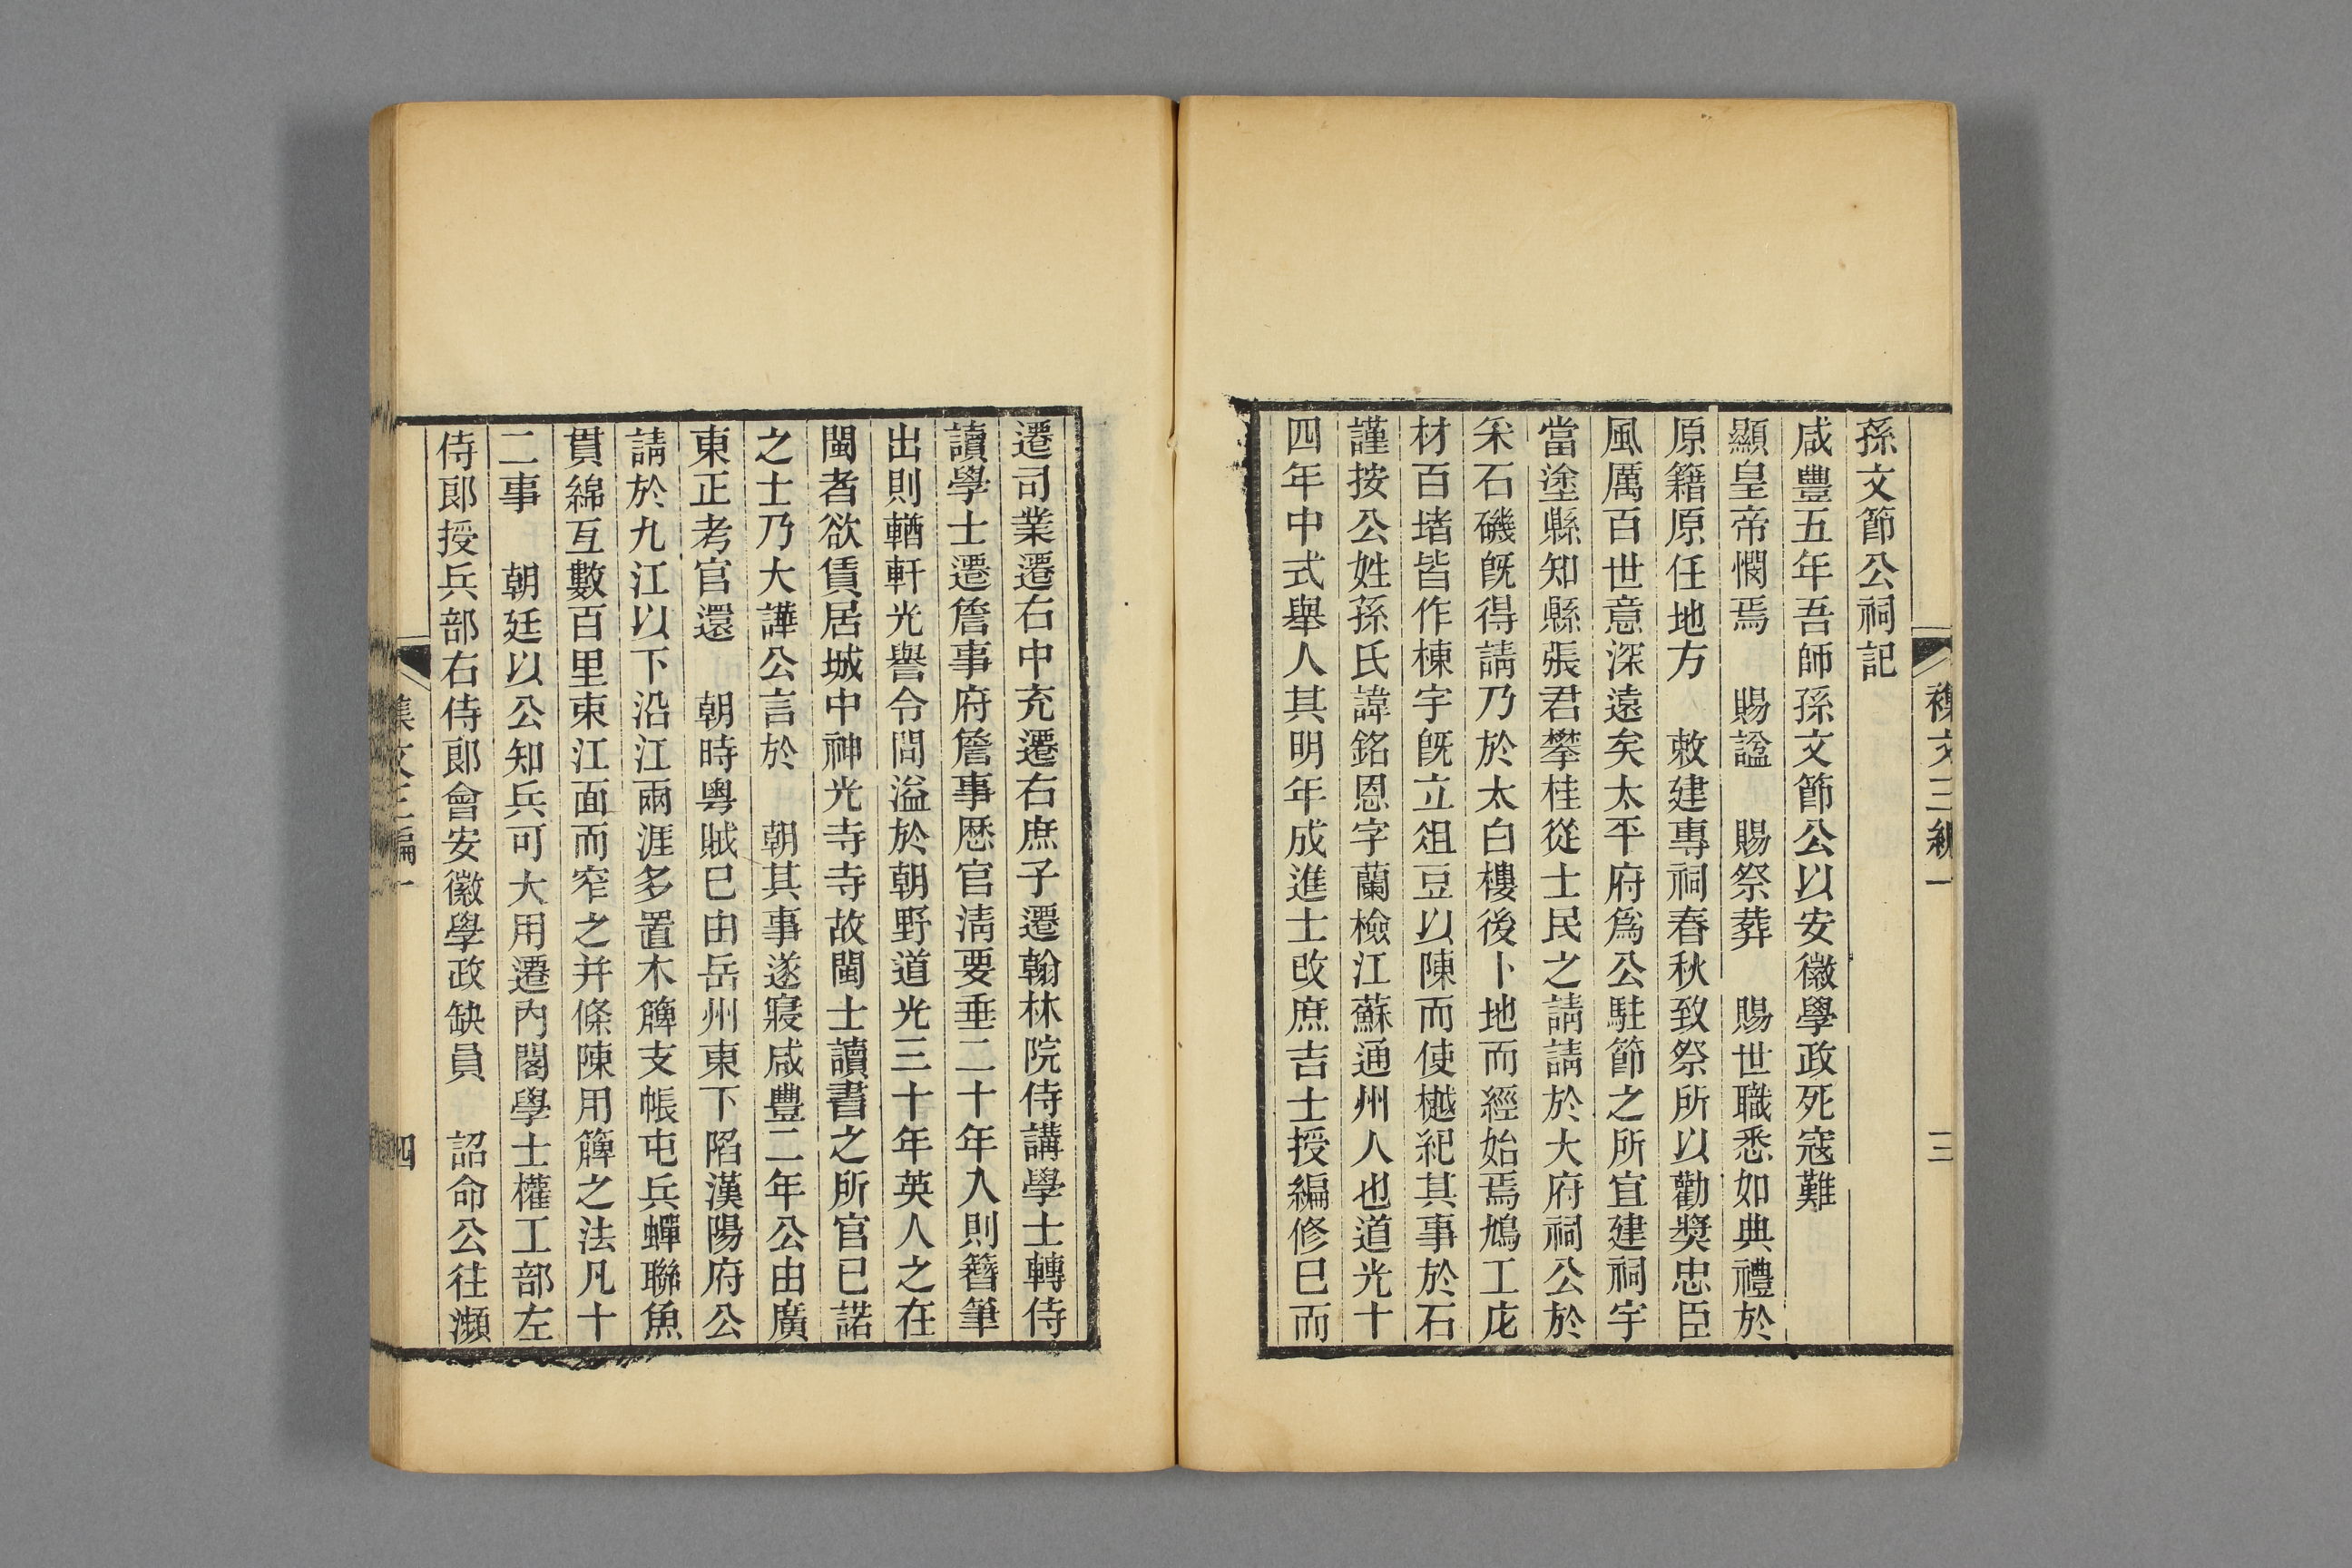 襍文三編一
三
孫文節公祠記
咸豐五年吾師孫文節公以安徽學政死寇難
顯皇帝憫焉　賜諡　賜祭葬　賜世職悉如典禮於
原籍原任地方　敕建專祠春秋致祭所以勸獎忠臣
風厲百世意深遠矣太平府爲公駐節之所宜建祠宇
當塗縣知縣張君攀桂從士民之請請於大府祠公於
采石磯旣得請乃於太白樓後卜地而經始焉鳩工庀
材百堵皆作棟宇旣立俎豆以陳而使樾紀其事於石
謹按公姓孫氏諱銘恩字蘭檢江蘇通州人也道光十
四年中式舉人其明年成進士改庶吉士授編修巳而
遷司業遷右中充遷右庶子遷翰林院侍講學士轉侍
讀學士遷詹事府詹事厯官淸要垂二十年入則簪筆
出則輶軒光譽令問溢於朝野道光三十年英人之在
閩者欲賃居城中神光寺寺故閩士讀書之所官巳諾
之士乃大譁公言於　朝其事遂寢咸豐二年公由廣
東正考官還　朝時粵賊巳由岳州東下陷漢陽府公
請於九江以下沿江兩涯多置木簰支帳屯兵蟬聯魚
貫綿亙數百里束江面而窄之并條陳用簰之法凡十
二事　朝廷以公知兵可大用遷內閣學士權工部左
侍郎授兵部右侍郎會安徽學政缺員　詔命公往瀕
集文三編一
四